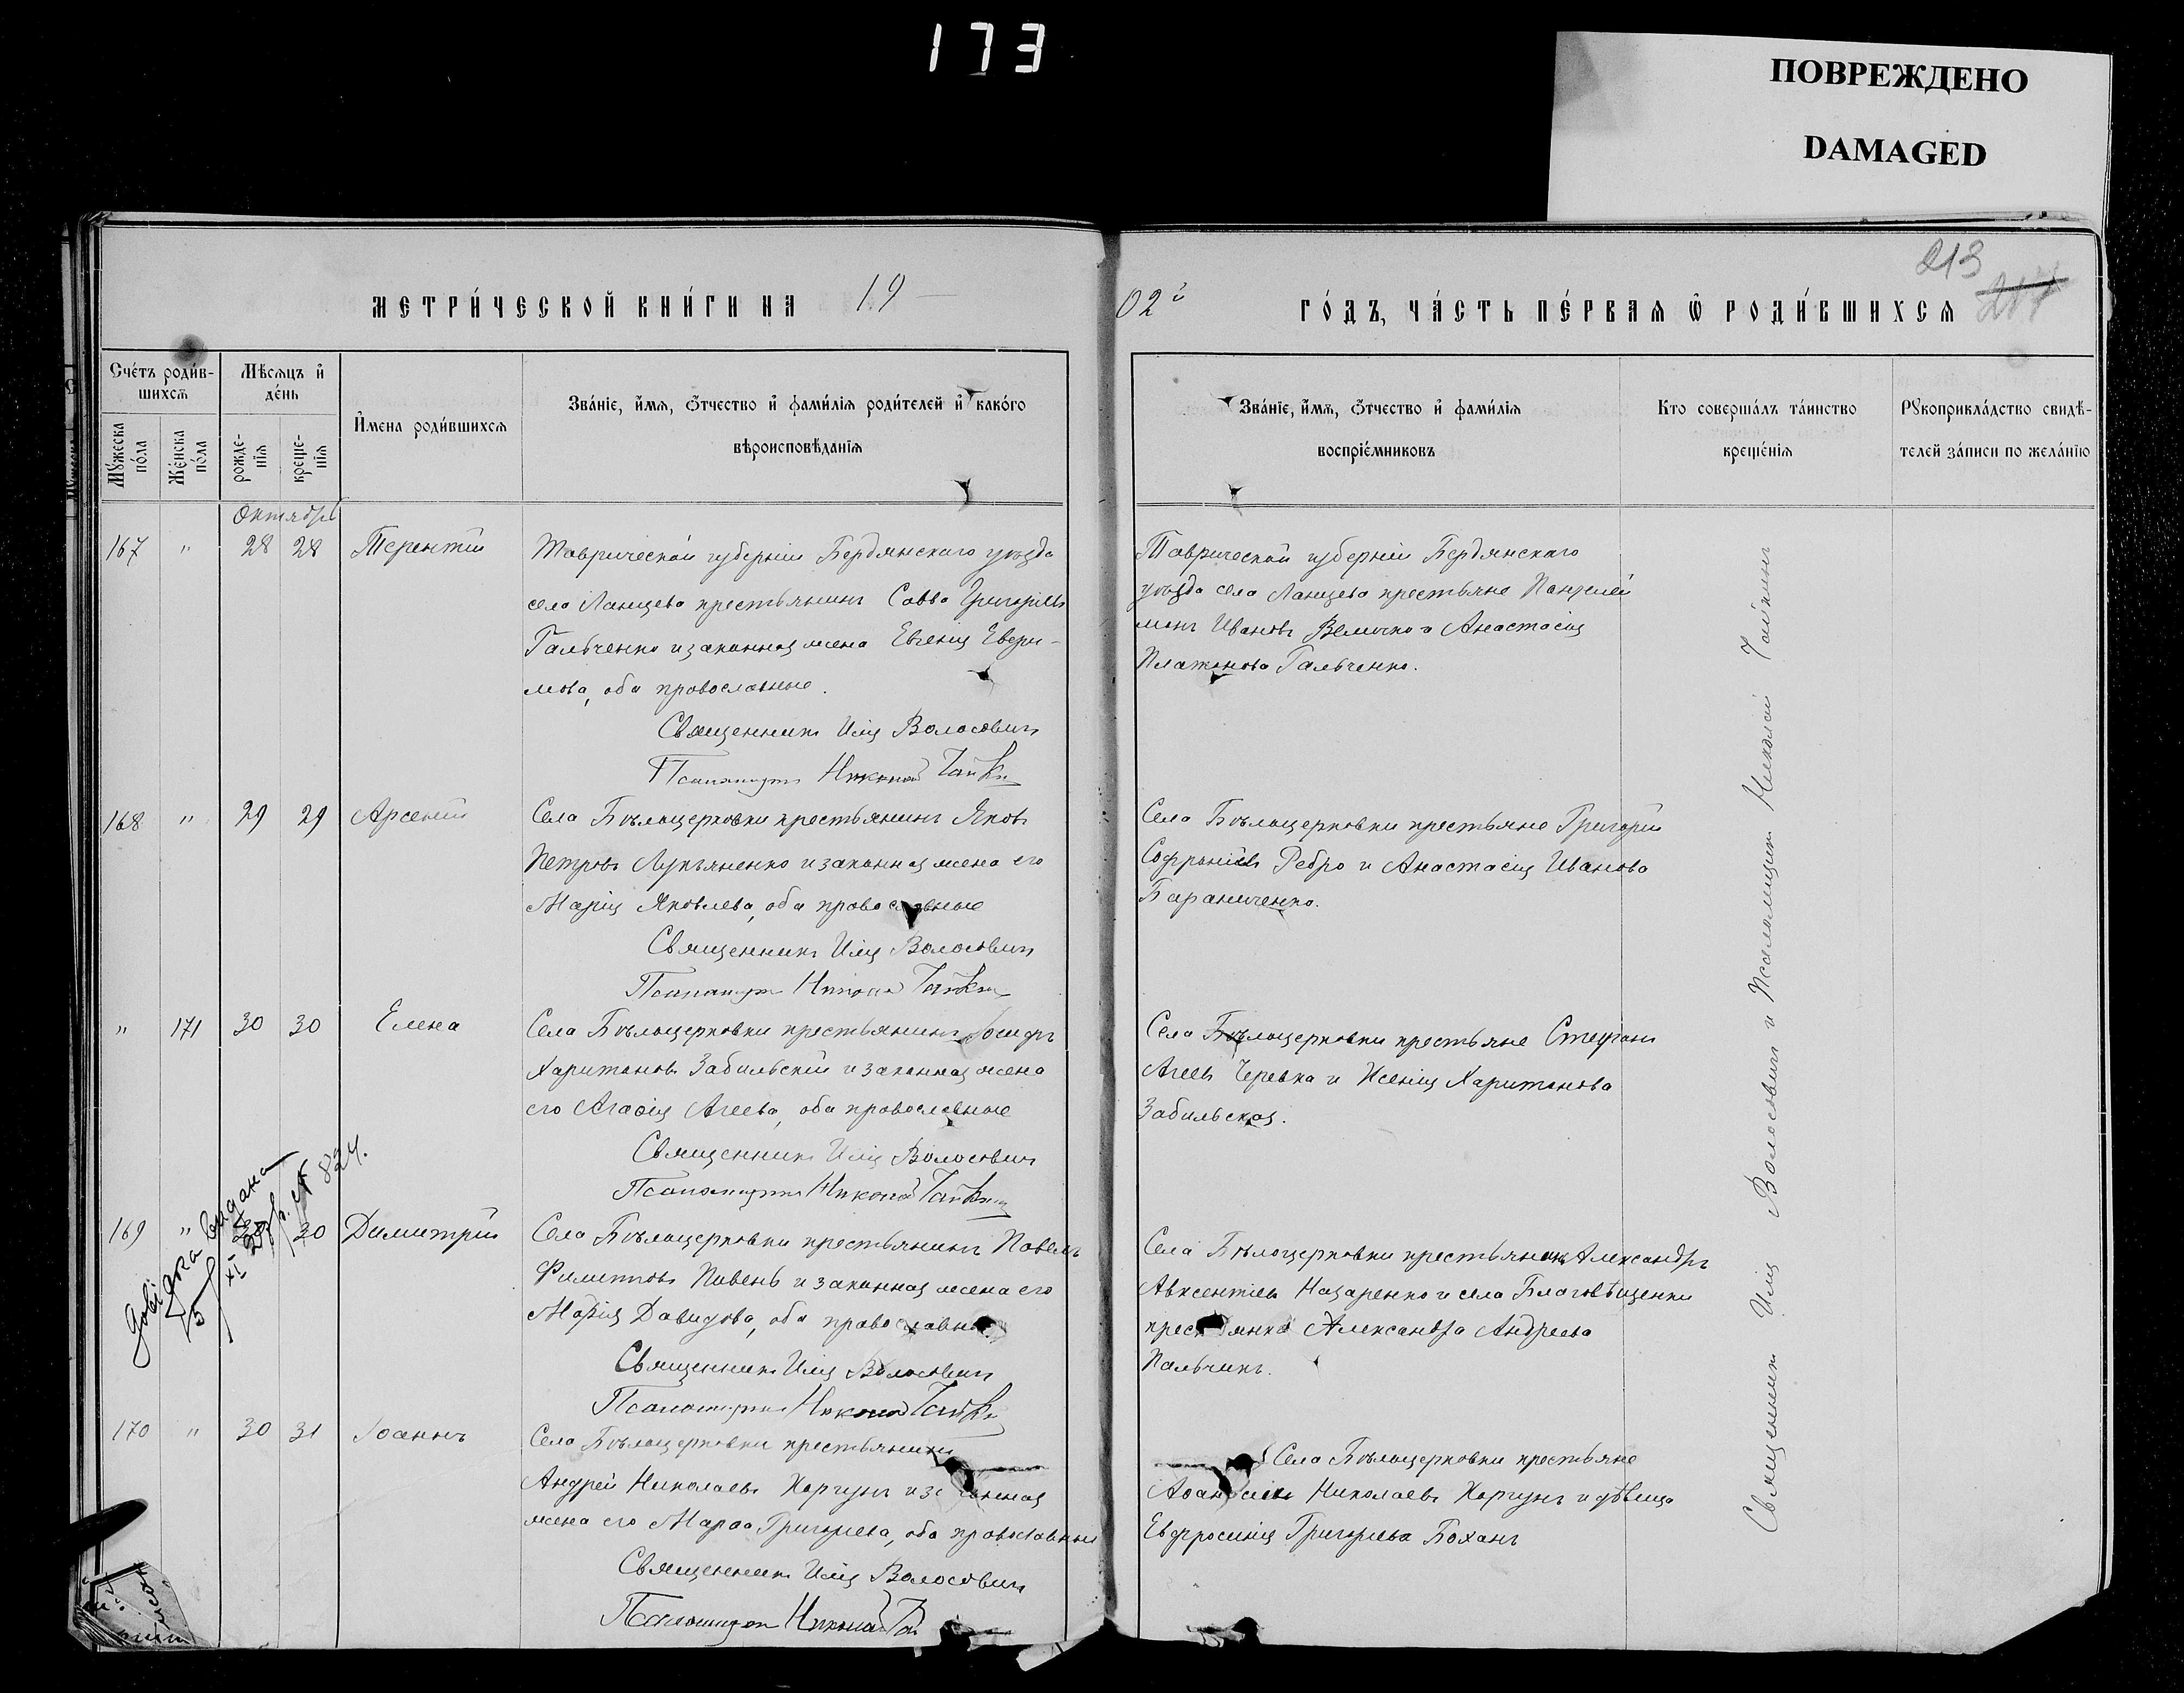 173
ПОВРЕЖДЕНО
DAMAGED
213
217
МЕТРИ́ЧЕСКОЙ КНИ́ГИ НА 19
02й ГО́ДЪ, ЧА́СТЬ ПЕ́РВАѦ Ѽ РОДИ́ВШИХСѦ
Сче́тъ роди́в-
шихсѧ
Мѣ́сѧцъ и҆
де́нь
Мꙋ́жеска
по́ла
Же́нска
по́ла
рожде́-
нїѧ
креще́-
нїѧ
И҆мена роди́вшихсѧ
Зва́нїе, и҆́мѧ, ѻ҆́тчество и҆ фами́лїѧ роди́телей и҆ како́гѡ
вѣроисповѣ́данїѧ
Зва́нїе, и҆́мѧ, ѻ҆́тчество и҆ фами́лїѧ
воспрїе́мниковъ
Кто соверша́лъ та́инство
креще́нїѧ
Рꙋкоприкла́дство свидѣ́-
телей за́писи по жела́нїю
Октябрь
167 " 28 28 Терентій
Таврической губерніи Бердянскаго уѣзда
села Ланцева крестьянинъ Савва Григорьевъ
Гальченко и законная жена Евгенія Ефри-
мова, оба православные.
Священникъ Илія Волосовичъ
Псаломщикъ Николай Чайкинъ
Таврической губерніи Бердянскаго
уѣзда села Ланцева крестьяне Пантелей
монъ Ивановъ Величко и Анастасія
Платонова Гальченко.
168 " 29 29 Арсеній
Села Бѣлоцерковки крестьянинъ Яковъ
Петровъ Лукьяненко и законная жена его
Марія Яковлева, оба православные
Священникъ Илія Волосовичъ
Псаломщикъ Николай Чайкинъ
Села Бѣлоцерковки крестьяне Григорій
Софроніевъ Ребро и Анастасія Иванова
Бараниченко.
" 171 30 30 Елена
Села Бѣлоцерковки крестьянинъ Іосифъ
Харитоновъ Забильскій и законная жена
его Агафія Агеева, оба православные
Священникъ Илія Волосовичъ
Псаломщикъ Николай Чайкинъ
Села Бѣлоцерковки крестьяне Стефанъ
Агеевъ Черевка и Ксенія Харитонова
Забильская.
169 " 30 Димитрій
Села Бѣлоцерковки крестьянинъ Павелъ
Филипповъ Пивень и законная жена его
Марія Давидова, оба православные
Священникъ Илія Волосовичъ
Псаломщикъ Николай Чайкинъ
Села Бѣлоцерковки крестьянинъ Александръ
Авксентіевъ Назаренко и села Благовѣщенки
крестьянка Александра Андреева
Пальчикъ.
170 " 30 31 Іоаннъ
Села Бѣлоцерковки крестьянинъ
Андрей Николаевъ Коргунъ и законная
жена его Марфа Григорьева, оба православные
Священникъ Илія Волосовичъ
Псаломщикъ Николай
Села Бѣлоцерковки крестьяне
Афанасій Николаевъ Коргунъ и дѣвица
Евфросинія Григорьева Боханъ
Священникъ Илія Волосовичъ и Псаломщикъ Николай Чайкинъ